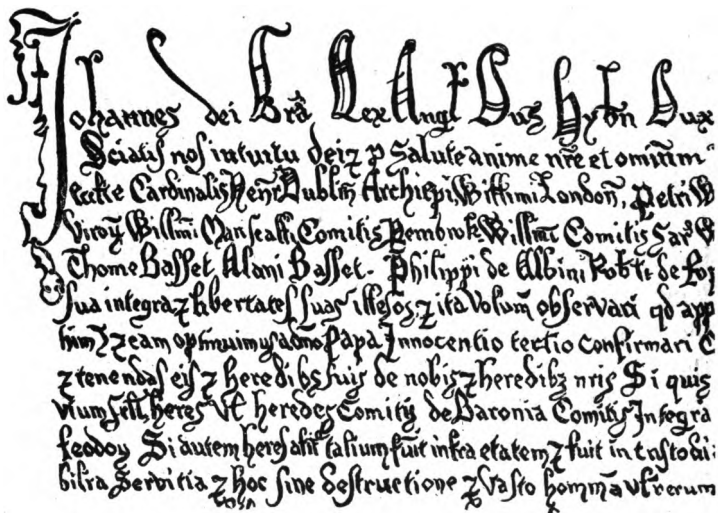 Johannes dei Gra Rex Angl Dus Hybn Dux
Sciatis nos intuitu dei ⁊ p salute anime nre et omnium
eccle Cardinalis Henr Dublin Archiepi, Willimi London, Petri W
Willmi Marscalli, Comitis Pembrok, Willmi Comitis Sar W
Thome Basset Alani Basset. Philippi de Albini Robti de
sua integra ⁊ libertates suas illesas, ⁊ ita volum observari qd app
⁊ eam optinuimus a dno Papa Innocentio tertio confirmari C
⁊ tenendas eis ⁊ heredibs suis de nobis ⁊ heredibz nris Si quis
heres vl heredes Comitis de Baronia Comitis Integra
feodoꝝ Si autem heres alic talium fuit infra etatem ⁊ fuit in custodi
servitia ⁊ hoc sine destructione ⁊ vasto hominū vl rerum